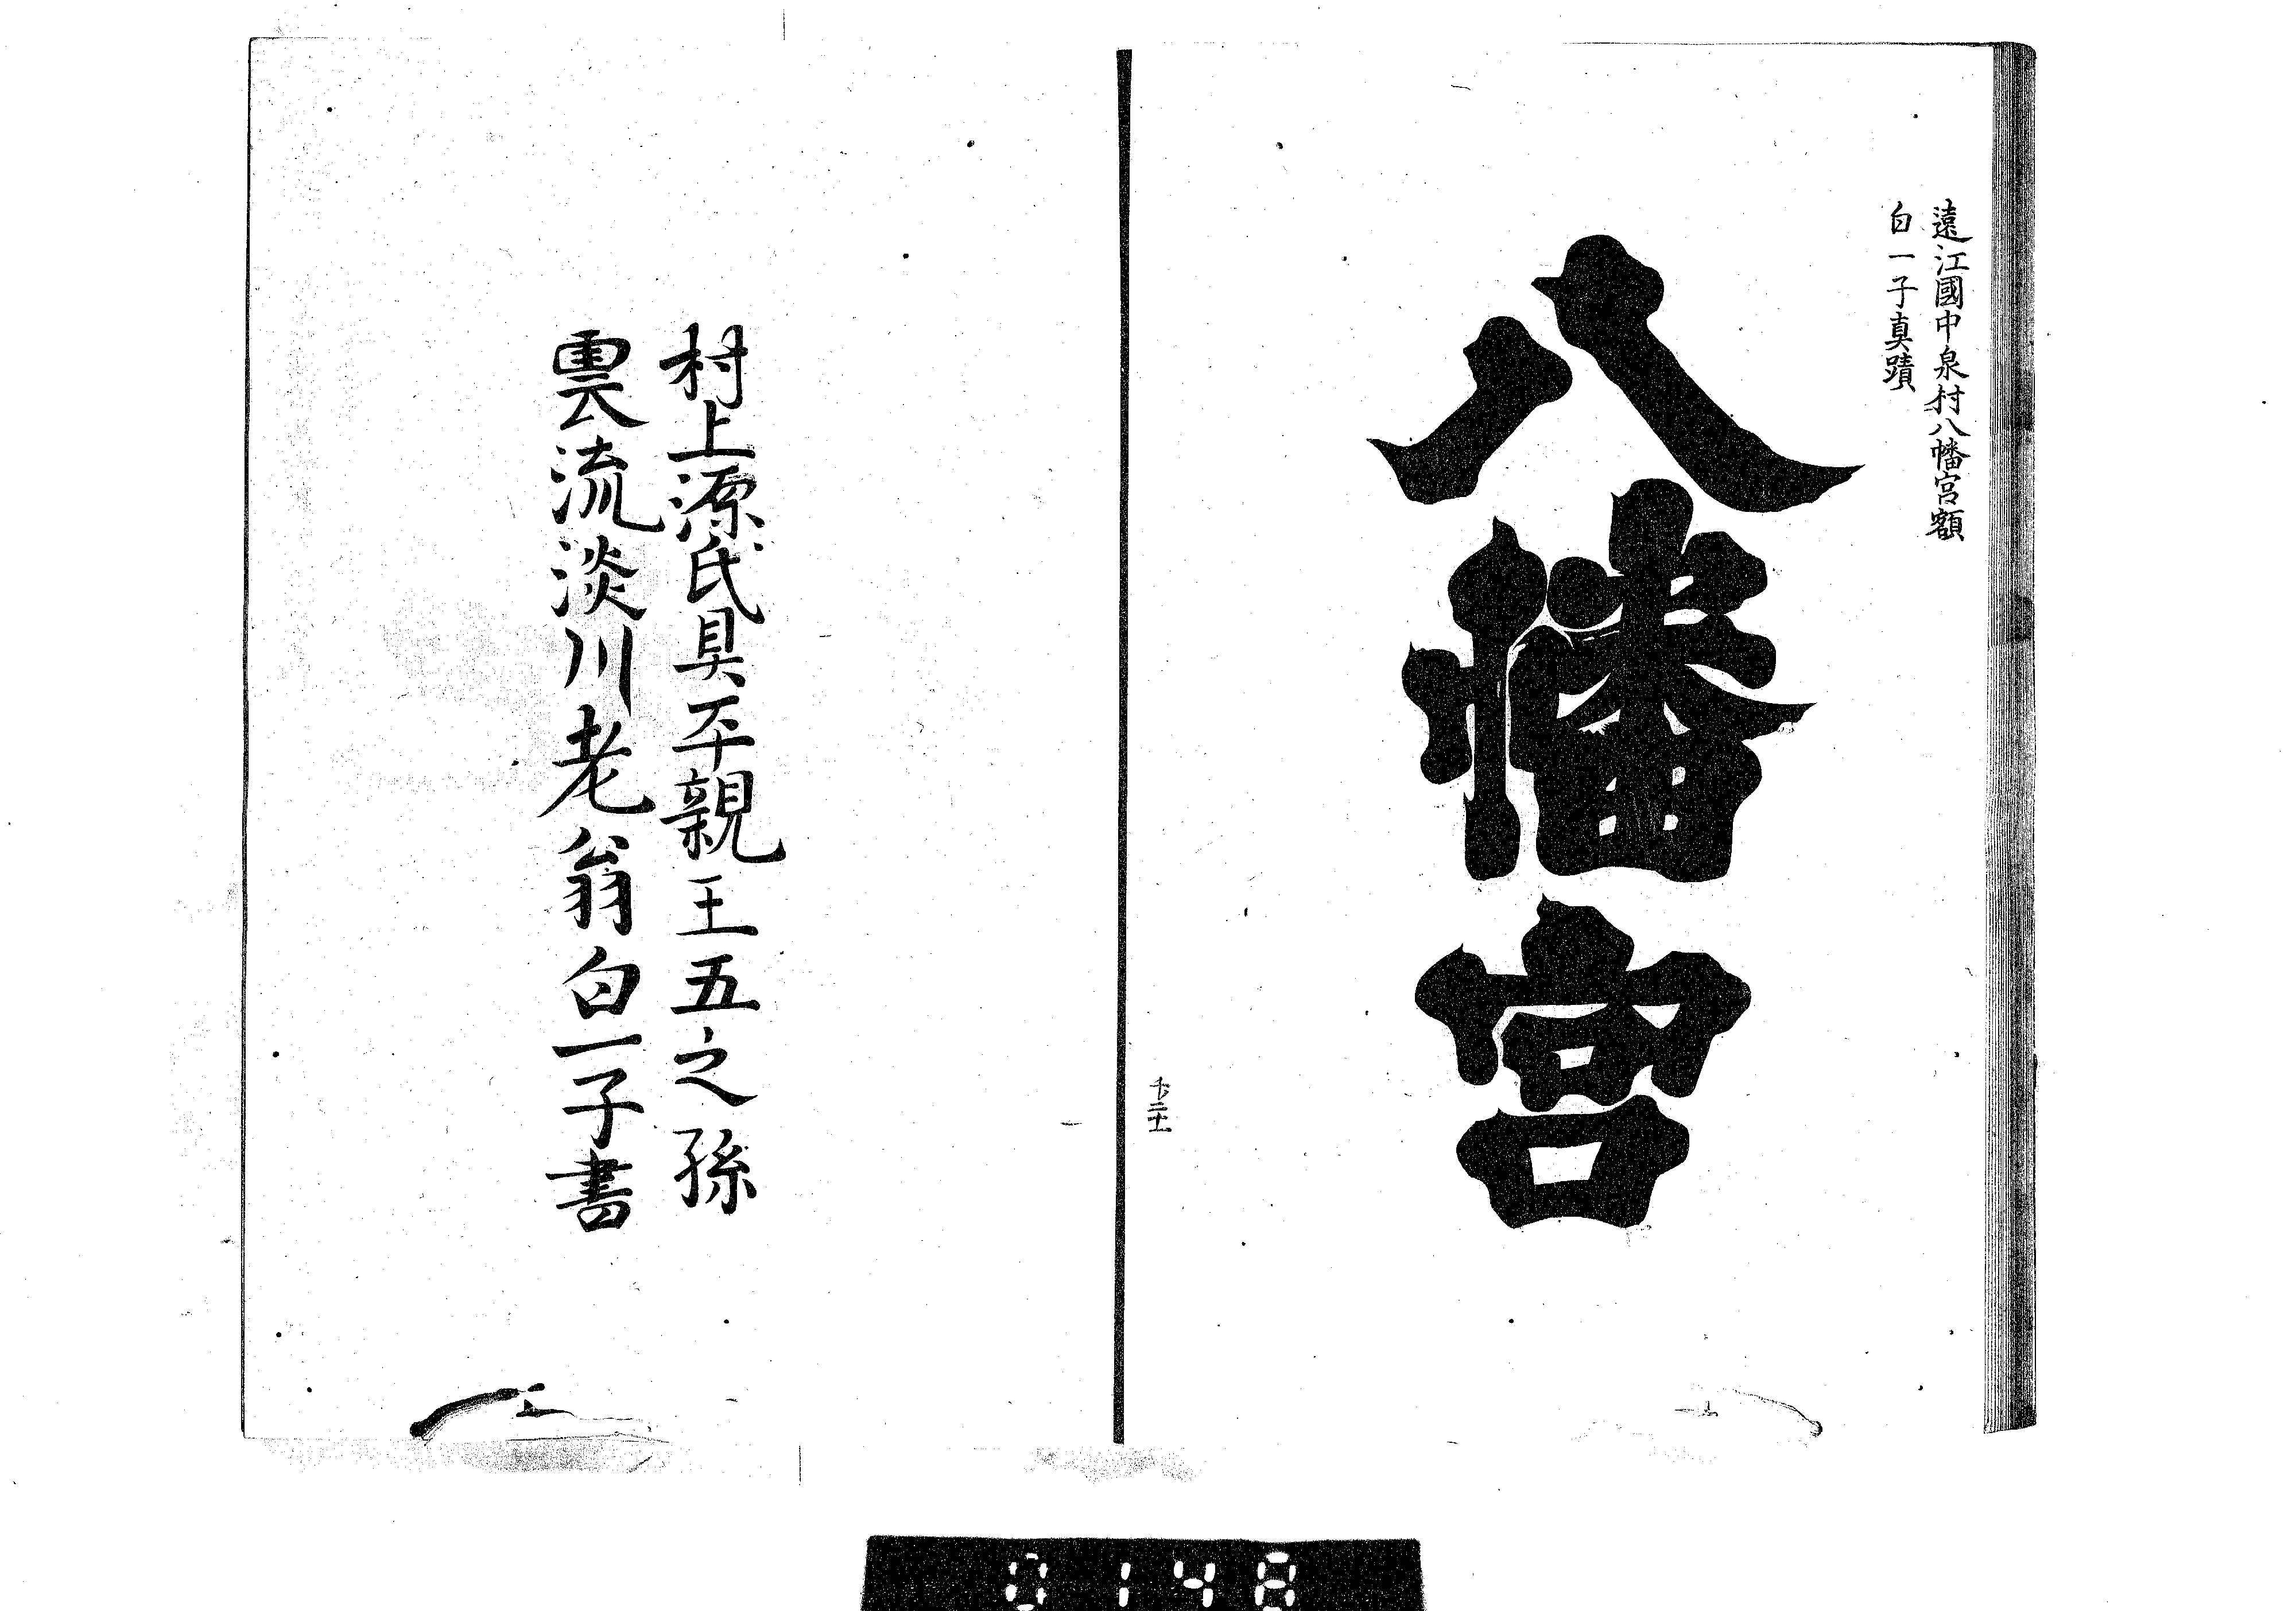 遠江國中泉村八幡宮額
白一子真蹟
八幡宮
村上源氏具平親王五之孫
雲流淡川老翁白一子書